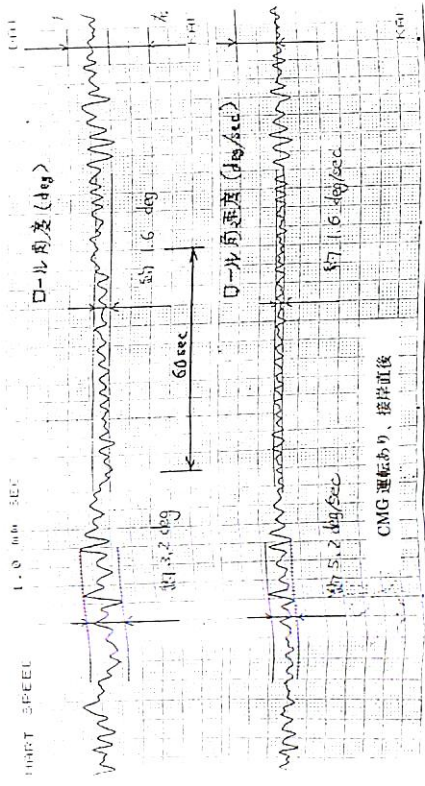 CHART SPEED 1.0 mm SEC
ロール角度 (deg)
約 3.2 deg
約 1.6 deg
60 sec
ロール角速度 (deg/sec)
約 5.2 deg/sec
約 1.6 deg/sec
CMG 運転あり、接岸直後